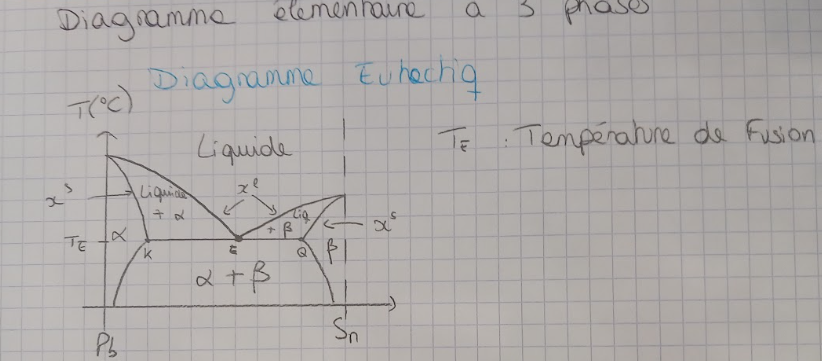 Diagramme élémentaire à 3 phases
Diagramme Eutectiq
T(°C)
Liquide
T_E : Température de Fusion
x^s
Liquide + α
x^l
Liq + β
x^s
T_E
α
K
E
Q
β
α + β
Pb
Sn